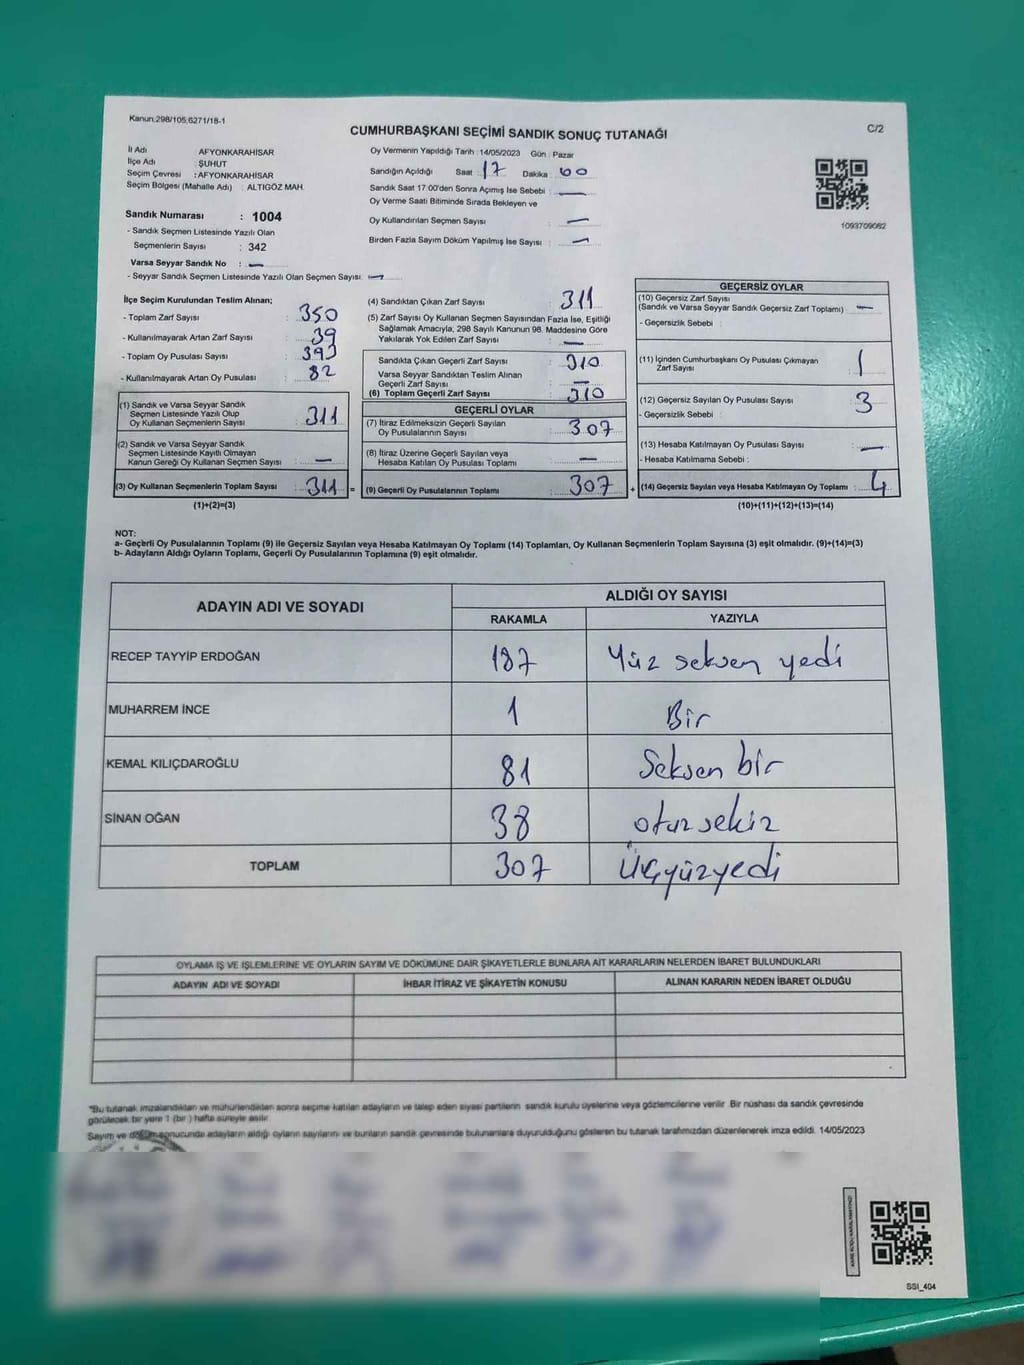 Kanun:298/105;6271/18-1
CUMHURBAŞKANI SEÇİMİ SANDIK SONUÇ TUTANAĞI
C/2
İl Adı AFYONKARAHİSAR
İlçe Adı : ŞUHUT
Seçim Çevresi : AFYONKARAHİSAR
Seçim Bölgesi (Mahalle Adı) : ALTIGÖZ MAH.
Sandık Numarası : 1004
- Sandık Seçmen Listesinde Yazılı Olan
Seçmenlerin Sayısı : 342
Varsa Seyyar Sandık No : —
- Seyyar Sandık Seçmen Listesinde Yazılı Olan Seçmen Sayısı: —
Oy Vermenin Yapıldığı Tarih : 14/05/2023 Gün : Pazar
Sandığın Açıldığı Saat : 17 Dakika : 00
Sandık Saat 17:00'den Sonra Açımış İse Sebebi : —
Oy Verme Saati Bitiminde Sırada Bekleyen ve
Oy Kullandırılan Seçmen Sayısı : —
Birden Fazla Sayım Döküm Yapılmış İse Sayısı : —
1093709062
İlçe Seçim Kurulundan Teslim Alınan;
- Toplam Zarf Sayısı : 350
- Kullanılmayarak Artan Zarf Sayısı : 39
- Toplam Oy Pusulası Sayısı : 393
- Kullanılmayarak Artan Oy Pusulası : 82
(1) Sandık ve Varsa Seyyar Sandık
Seçmen Listesinde Yazılı Olup
Oy Kullanan Seçmenlerin Sayısı : 311
(2) Sandık ve Varsa Seyyar Sandık
Seçmen Listesinde Kayıtlı Olmayan
Kanun Gereği Oy Kullanan Seçmen Sayısı : —
(3) Oy Kullanan Seçmenlerin Toplam Sayısı : 311 =
(1)+(2)=(3)
(4) Sandıktan Çıkan Zarf Sayısı : 311
(5) Zarf Sayısı Oy Kullanan Seçmen Sayısından Fazla İse, Eşitliği
Sağlamak Amacıyla, 298 Sayılı Kanunun 98. Maddesine Göre
Yakılarak Yok Edilen Zarf Sayısı : —
Sandıkta Çıkan Geçerli Zarf Sayısı : 310
Varsa Seyyar Sandıktan Teslim Alınan
Geçerli Zarf Sayısı : —
(6) Toplam Geçerli Zarf Sayısı : 310
GEÇERLİ OYLAR
(7) İtiraz Edilmeksizin Geçerli Sayılan
Oy Pusulalarının Sayısı : 307
(8) İtiraz Üzerine Geçerli Sayılan veya
Hesaba Katılan Oy Pusulası Toplamı : —
(9) Geçerli Oy Pusulalarının Toplamı : 307 +
GEÇERSİZ OYLAR
(10) Geçersiz Zarf Sayısı
(Sandık ve Varsa Seyyar Sandık Geçersiz Zarf Toplamı) : —
- Geçersizlik Sebebi :
(11) İçinden Cumhurbaşkanı Oy Pusulası Çıkmayan
Zarf Sayısı : 1
(12) Geçersiz Sayılan Oy Pusulası Sayısı : 3
- Geçersizlik Sebebi :
(13) Hesaba Katılmayan Oy Pusulası Sayısı : —
- Hesaba Katılmama Sebebi :
(14) Geçersiz Sayılan veya Hesaba Katılmayan Oy Toplamı : 4
(10)+(11)+(12)+(13)=(14)
NOT:
a- Geçerli Oy Pusulalarının Toplamı (9) ile Geçersiz Sayılan veya Hesaba Katılmayan Oy Toplamı (14) Toplamları, Oy Kullanan Seçmenlerin Toplam Sayısına (3) eşit olmalıdır. (9)+(14)=(3)
b- Adayların Aldığı Oyların Toplamı, Geçerli Oy Pusulalarının Toplamına (9) eşit olmalıdır.
ADAYIN ADI VE SOYADI ALDIĞI OY SAYISI
RAKAMLA YAZIYLA
RECEP TAYYİP ERDOĞAN 187 Yüz seksen yedi
MUHARREM İNCE 1 Bir
KEMAL KILIÇDAROĞLU 81 Seksen bir
SİNAN OĞAN 38 otuz sekiz
TOPLAM 307 Üçyüzyedi
OYLAMA İŞ VE İŞLEMLERİNE VE OYLARIN SAYIM VE DÖKÜMÜNE DAİR ŞİKAYETLERLE BUNLARA AİT KARARLARIN NELERDEN İBARET BULUNDUKLARI
ADAYIN ADI VE SOYADI İHBAR İTİRAZ VE ŞİKAYETİN KONUSU ALINAN KARARIN NEDEN İBARET OLDUĞU
*Bu tutanak imzalandıktan ve mühürlendikten sonra seçime katılan adayların ve talep eden siyasi partilerin sandık kurulu üyelerine veya gözlemcilerine verilir. Bir nüshası da sandık çevresinde
görülecek bir yere 1 (bir) hafta süreyle asılır.
Sayım ve döküm sonucunda adayların aldığı oyların sayılarını ve bunların sandık çevresinde bulunanlara duyurulduğunu gösteren bu tutanak tarafımızdan düzenlenerek imza edildi. 14/05/2023
SSI_404